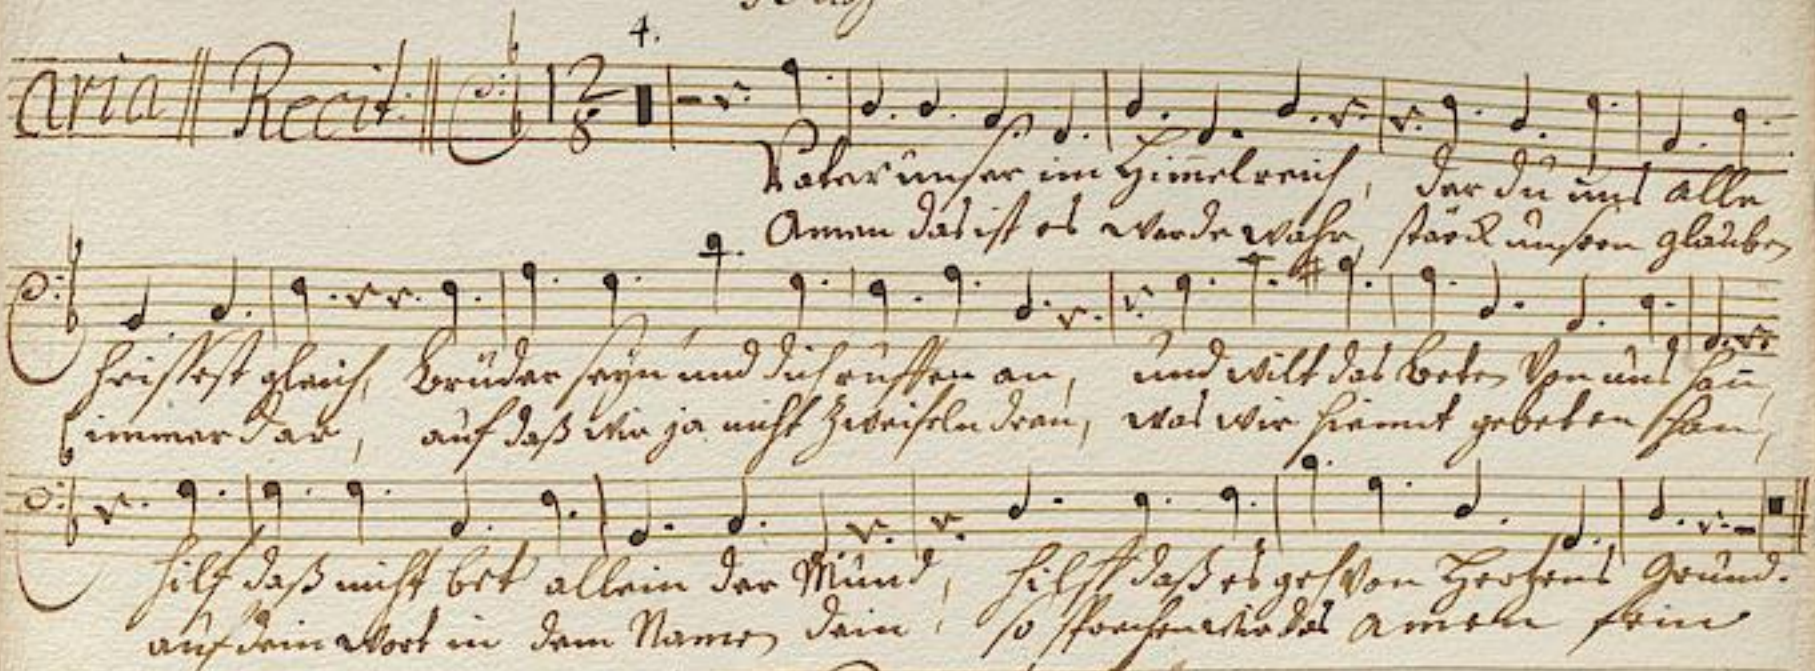 4.
Aria || Recit: || 2/8
Vater unser im Him̅elreich, der du uns alle
Amen das ist es werde wahr, stärck unsern glauben
heissest gleich, Brüder seyn und dich ruffen an, und wilt das beten von uns han,
immerdar, auf daß wir ja nicht zweifeln dran, was wir hiemit gebeten han,
hilf daß nicht bet allein der Mund, hilff daß es geh von Hertzens Grund.
auf dein Wort in dem Namen dein, so sprechen wir das Amen fein